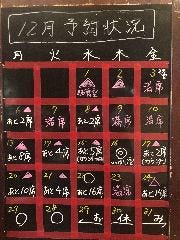 12月予約状況
月 火 水 木 金
1 2 3
満席
6 7 8 9 10
あと2席 満席 あと2席 満席 満席
13 14 15 16 17
あと8席 あと4席 あと5席 あと2席
20 21 22 23 24
あと10席 あと4席 あと16席 満席 あと14席
27 28 29 30 31
休